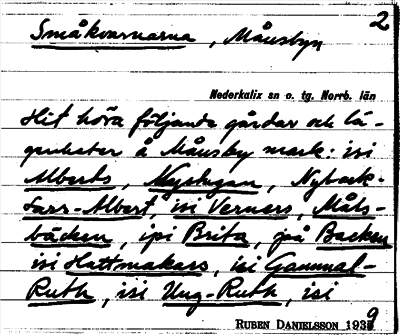 2
Småkvarnarna, Månsbyn
Nederkalix sn o. tg. Norrb. län
Hit höra följande gårdar och lä-
genheter å Månsby mark: isi
Alberts, Nystugan, Nyback-
Lars-Albert, isi Verners, Måns-
bäcken, ipi Brita, på Backen
isi Hattmakars, isi Gammal-
Ruth, isi Ung-Ruth, isi
RUBEN DANIELSSON 1939